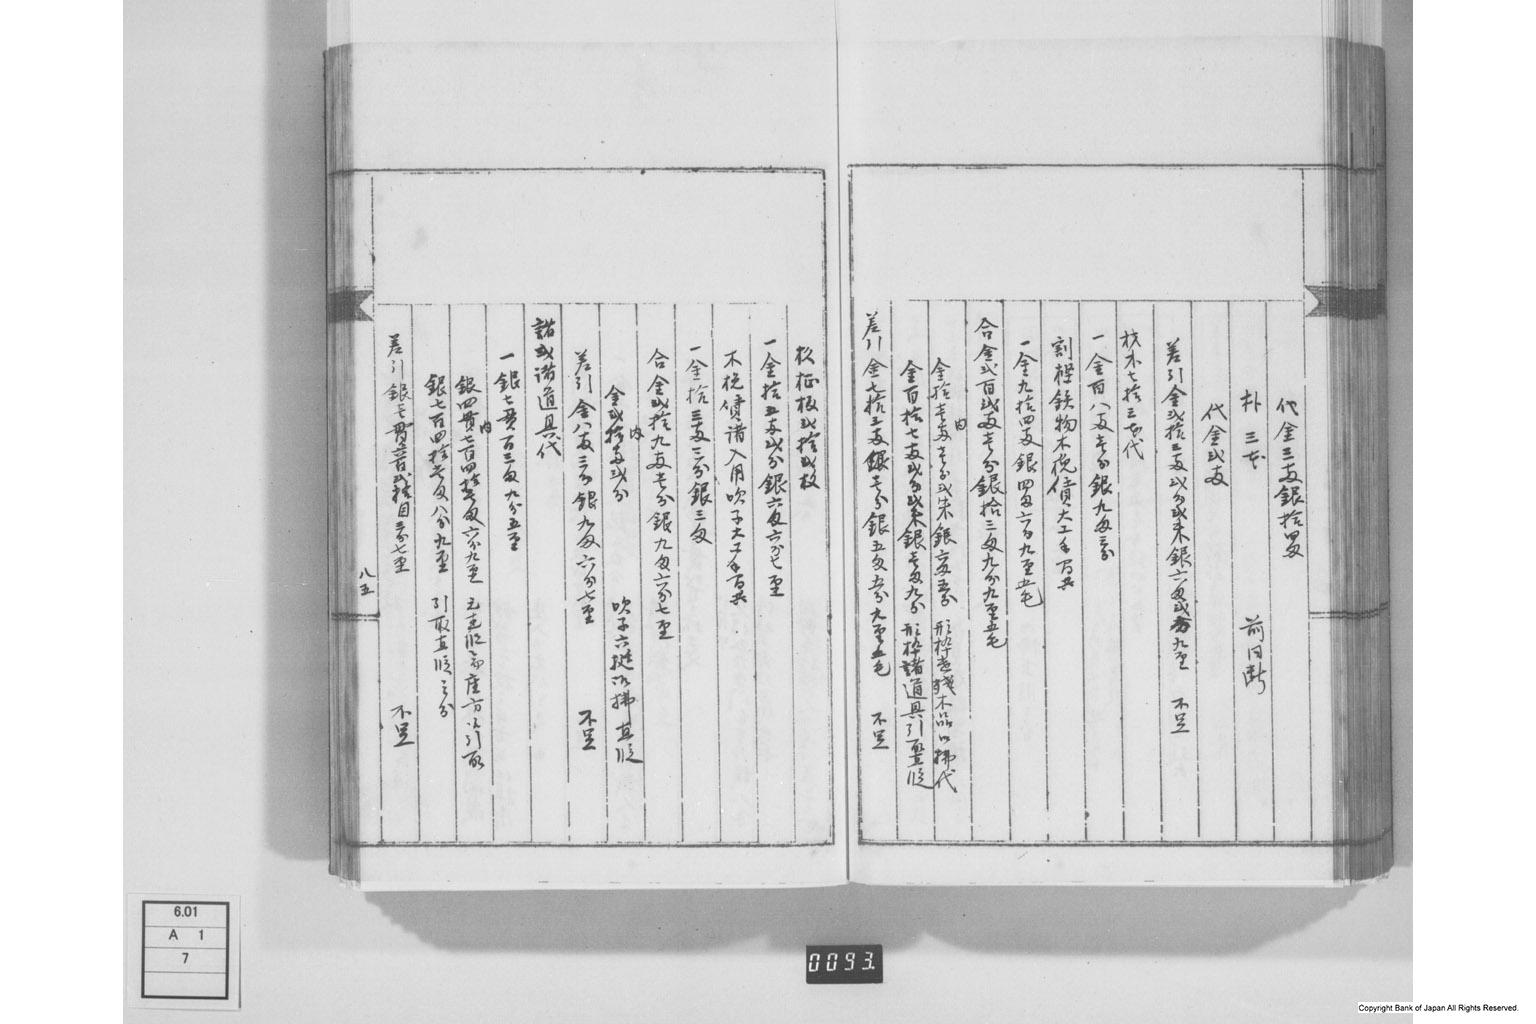 代金三両銀拾四匁
朴三本 前同断
代金弐両
差引金弐拾三両弐分弐朱銀六匁弐分九厘 不足
枚木七拾三本代
一金百八両壱分銀九匁三分
割樫鉄物木挽賃大工手間共
一金九拾四両銀四匁六分九厘五毛
合金弐百弐両壱分銀拾三匁九分九厘五毛
内
金拾壱両壱分弐朱銀六匁五分 形枠並残木品御拂代
金百拾七両弐分弐朱銀壱匁九分 形枠諸道具引置直段
差引金七拾三両銀壱分銀五匁五分九厘五毛 不足
板弐拾弐枚
一金拾五両弐分銀六匁六分七厘
木挽賃諸入用吹子大工手間共
一金拾三両三分銀三匁
合金弐拾九両壱分銀九匁六分七厘
内
金弐拾両弐分 吹子六挺御拂直段
差引金八両三分銀九匁六分七厘 不足
諸道具代
一銀七貫百三匁九分五厘
内
銀四貫七百四拾匁六分九厘
銀七百四拾匁八分九厘 引取直段之分
差引銀壱貫六百弐拾目三分七厘 不足
八五
6.01
A 1
7
0093.
Copyright Bank of Japan All Rights Reserved.